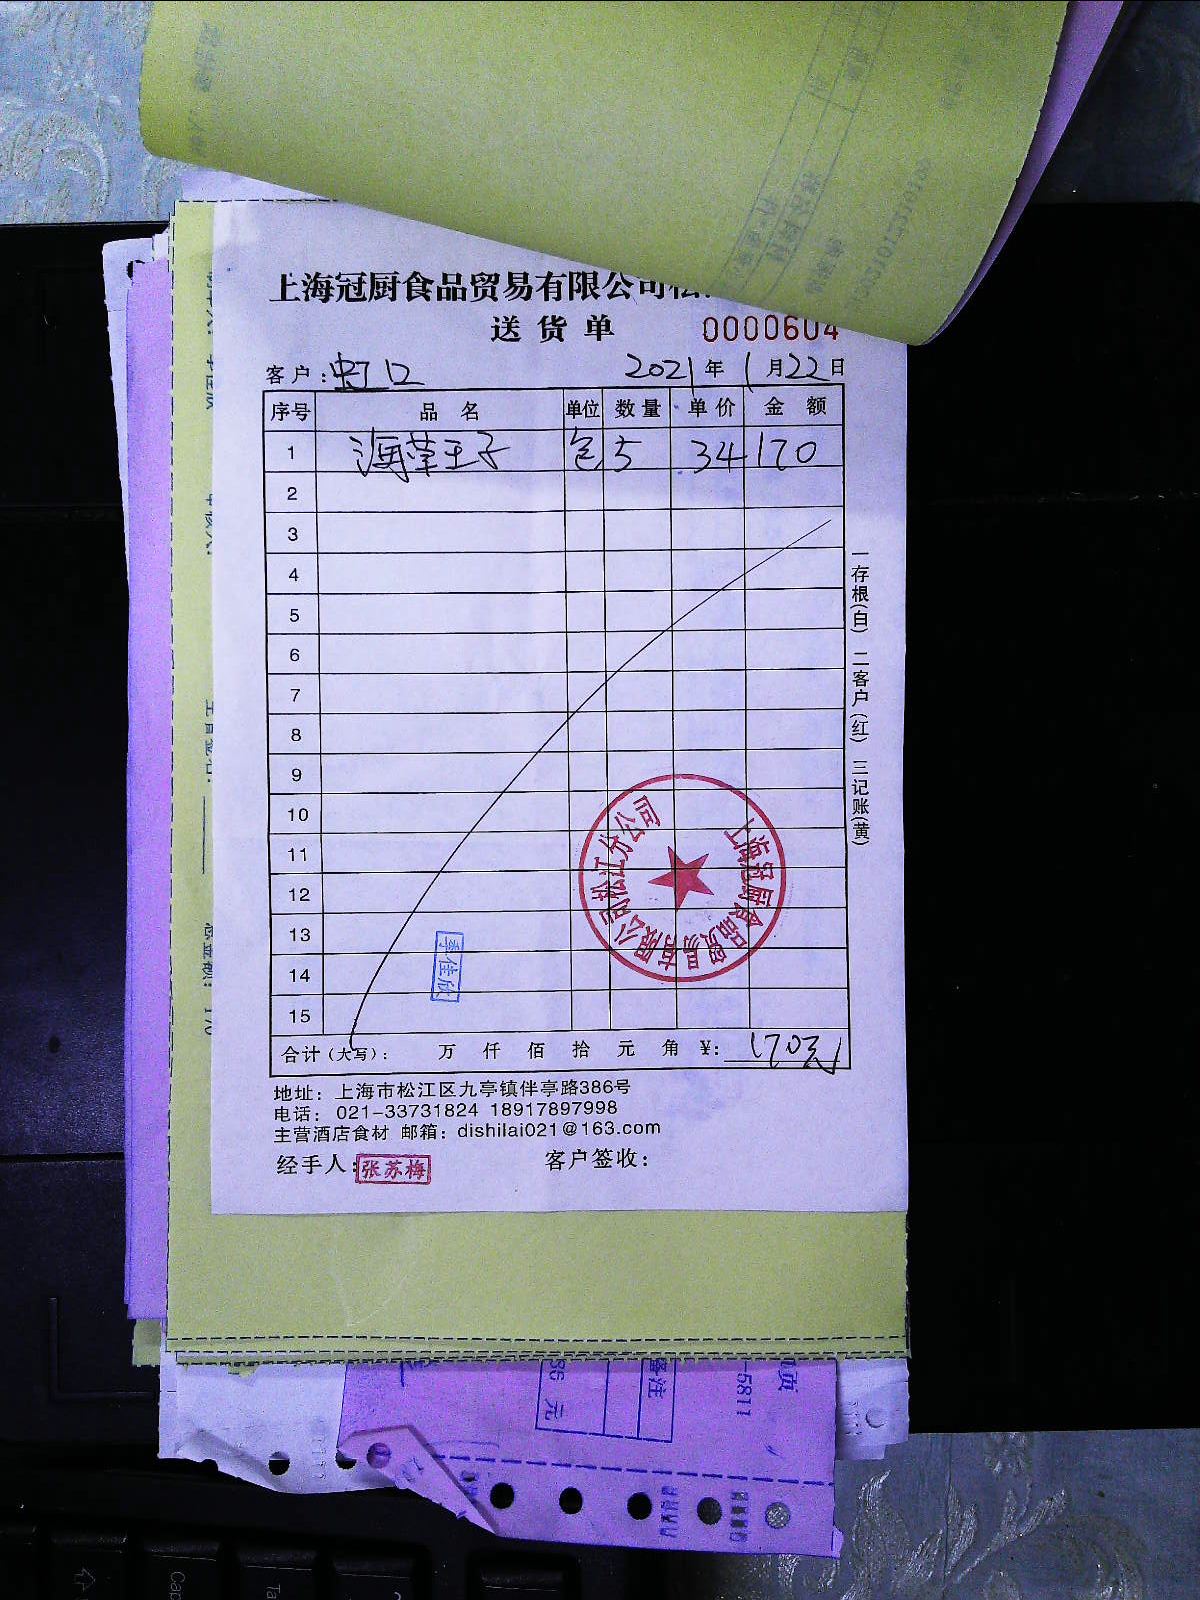 上海冠厨食品贸易有限公司松
送货单 0000604
客户：虹口 2021年1月22日
序号 品名 单位 数量 单价 金额
1 海草王子 包 5 34 170
2
3
4
5
6
7
8
9
10
11
12
13
14
15
上海冠厨食品贸易有限公司松江分公司
季佳欣
合计（大写）： 万 仟 佰 拾 元 角 ¥：170元
一存根（白） 二客户（红） 三记账（黄）
地址：上海市松江区九亭镇伴亭路386号
电话：021-33731824 18917897998
主营酒店食材 邮箱：dishilai021@163.com
经手人：张苏梅 客户签收：
备注
元
-5811